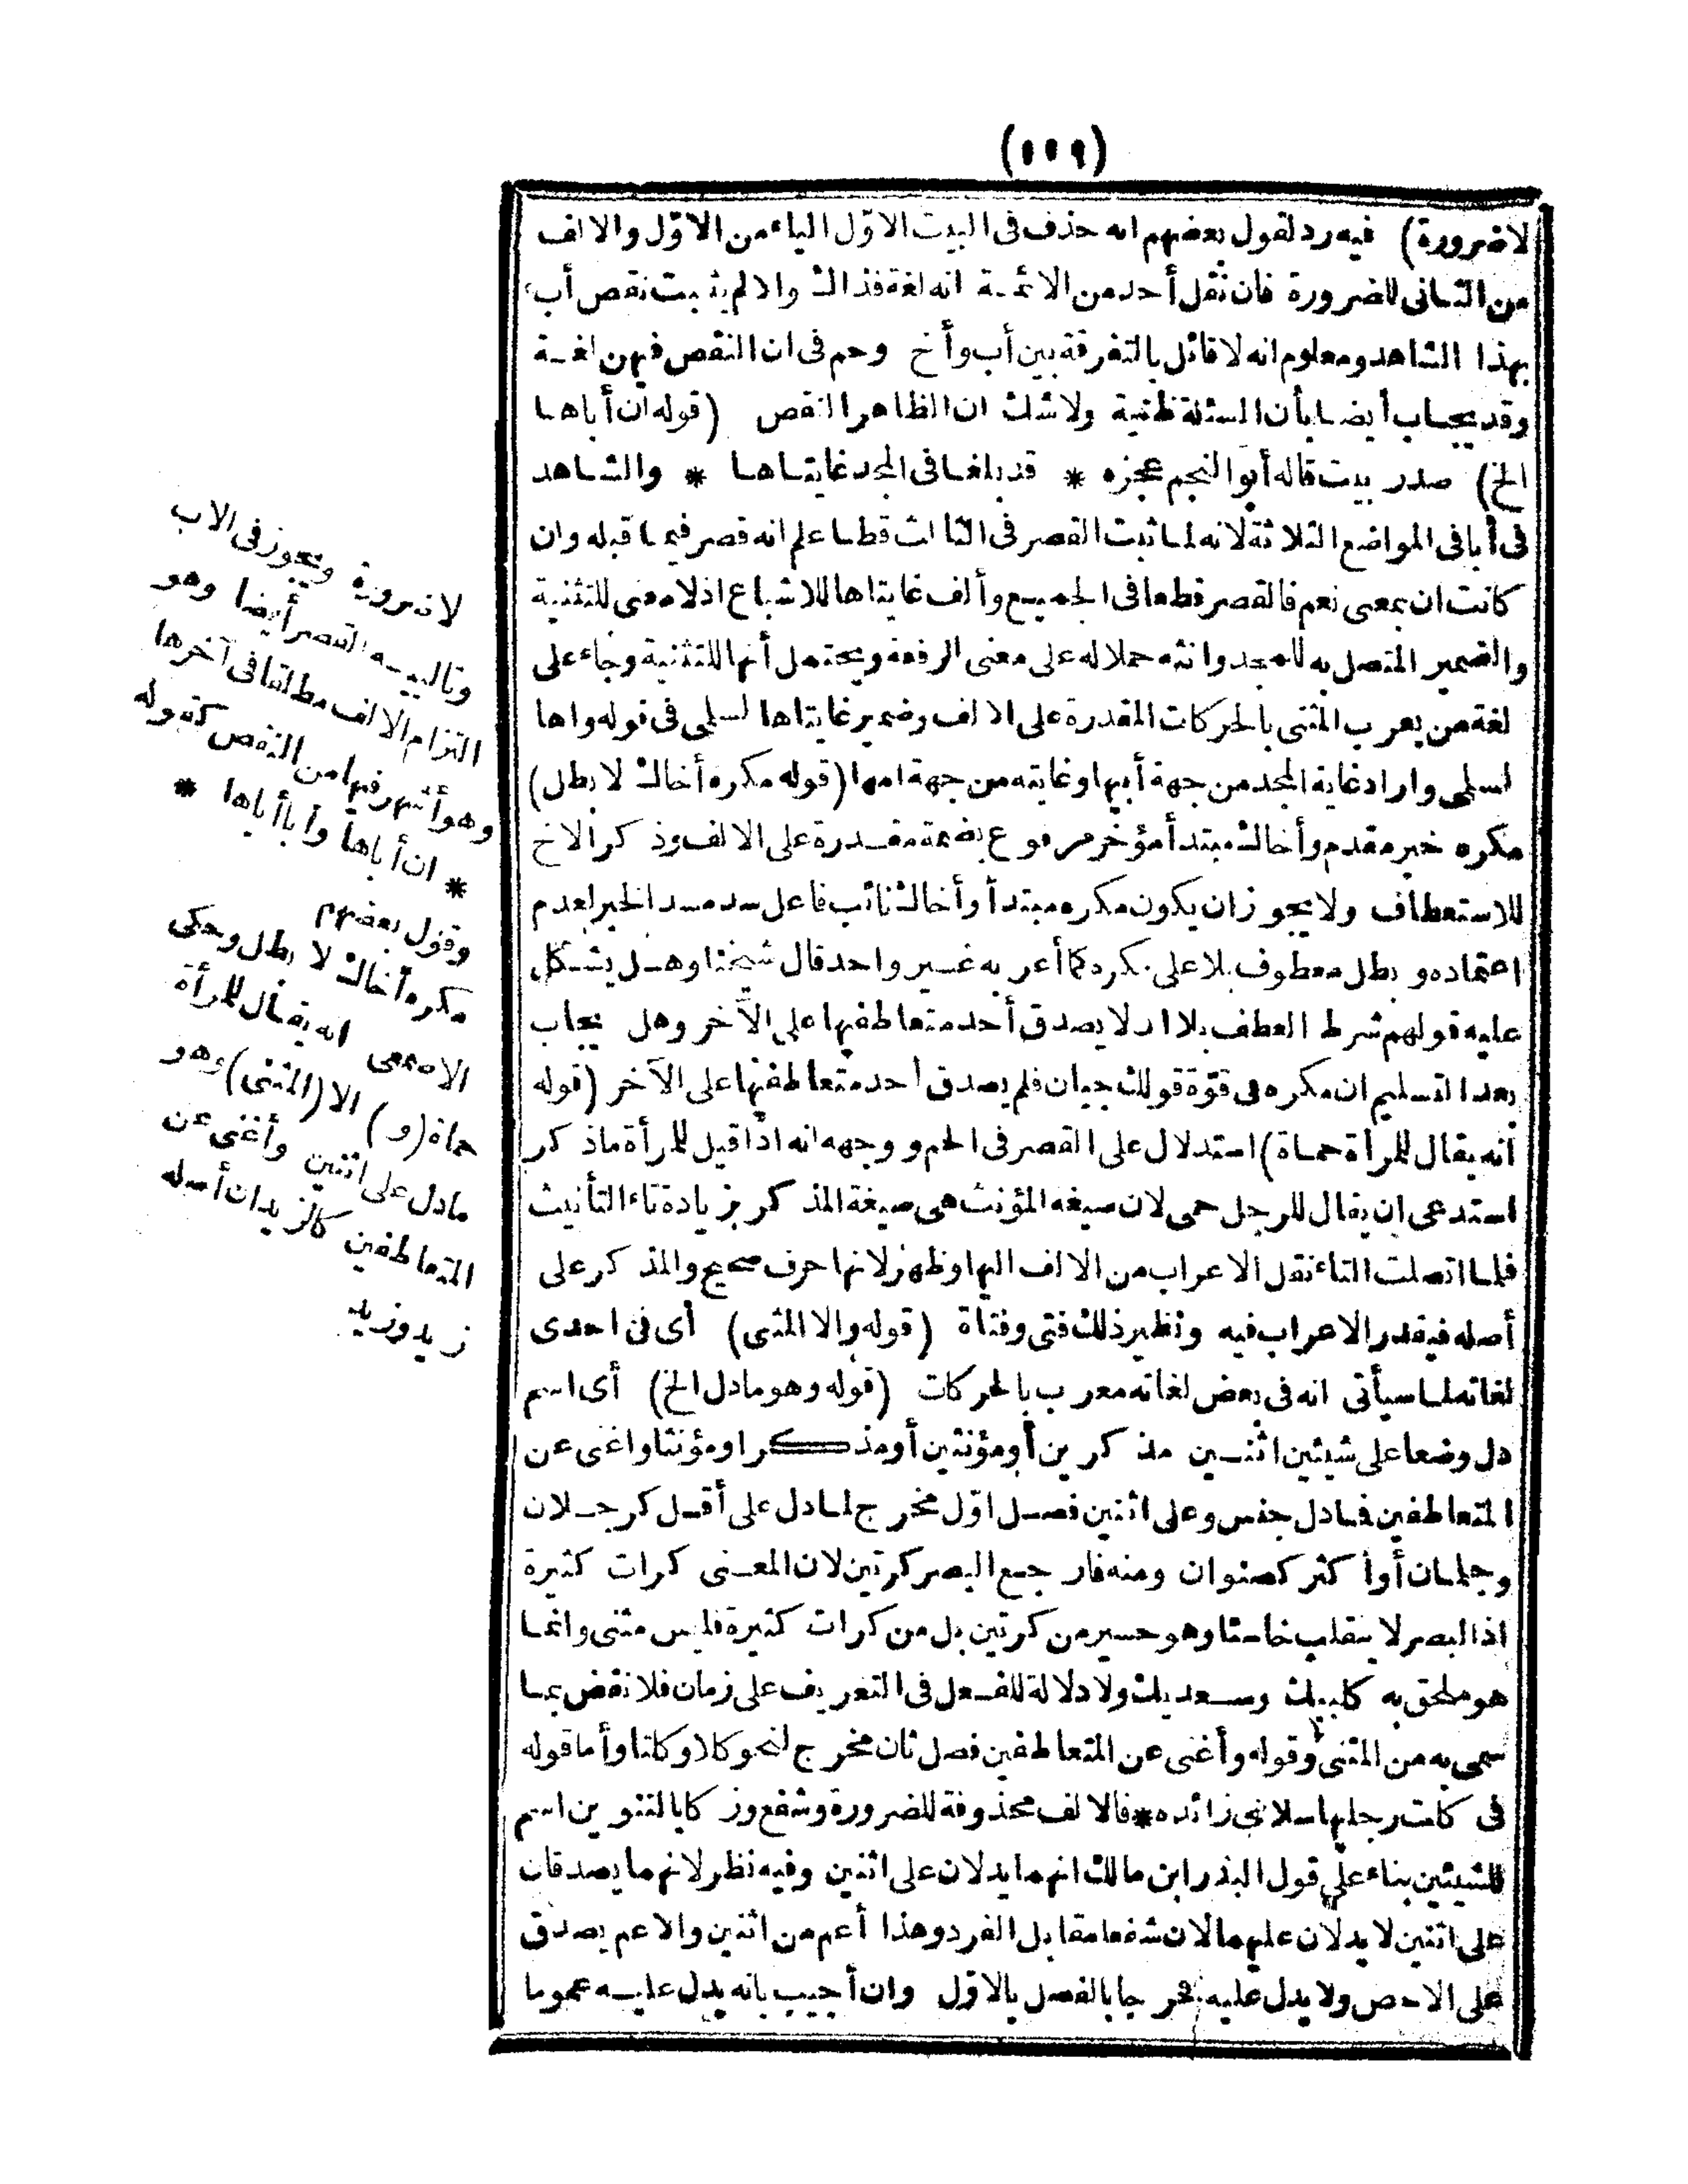 (١١٩)
لا ضرورة) فيه رد لقول بعضهم انه حذف فى البيت الاوّل الياء من الاوّل والالف
من الثانى للضرورة فان نقل أحد من الائمة انه لغة فذاك والا لم يثبت نقص أب
بهذا الشاهد ومعلوم انه لا قائل بالتفرقة بين أب وأخ وحم فى ان النقص فيهن لغة
وقد يجاب أيضا بأن المسئلة ظنية ولا شك ان الظاهر النقص (قوله ان أباها
الخ) صدر بيت قاله أبو النجم عجزه * قد بلغا فى المجد غايتاها * والشاهد
فى أبا فى المواضع الثلاثة لانه لما ثبت القصر فى الثالث قطعا علم انه قصر فيما قبله وان
كانت ان بمعنى نعم فالقصر قطعا فى الجميع وألف غايتاها للاشباع اذ لا معنى للتثنية
والضمير المتصل به للمجد وانثه حملا له على معنى الرفعة ويحتمل أنها للتثنية وجاء على
لغة من يعرب المثنى بالحركات المقدرة على الالف وضمير غايتاها لسلمى فى قوله واها
لسلمى واراد غاية المجد من جهة أبيها وغايته من جهة امها (قوله مكره أخاك لا بطل)
مكره خبر مقدم وأخاك مبتدأ مؤخر مرفوع بضمة مقدرة على الالف وذكر الاخ
للاستعطاف ولا يجوز ان يكون مكره مبتدأ وأخاك نائب فاعل سد مسد الخبر لعدم
اعتماده وبطل معطوف بلا على مكره كما أعربه غير واحد قال شيخنا وهل يشكل
عليه قولهم شرط العطف بلا ان لا يصدق أحد متعاطفيها على الآخر وهل يجاب
بعد التسليم ان مكره فى قوّة قولك جبان فلم يصدق احد متعاطفيها على الآخر (قوله
أنه يقال للمرأة حماة) استدلال على القصر فى الحم ووجهه انه اذا قيل للمرأة ما ذكر
استدعى ان يقال للرجل حمى لان صيغه المؤنث هى صيغة المذكر بزيادة تاء التأنيث
فلما اتصلت التاء نقل الاعراب من الالف اليها وظهر لانها حرف صحيح والمذكر على
أصله فيقدر الاعراب فيه ونظير ذلك فتى وفتاة (قوله والا المثنى) أى فى احدى
لغاته لما سيأتى انه فى بعض لغاته معرب بالحركات (قوله وهو ما دل الخ) أى اسم
دل وضعا على شيئين اثنين مذكرين أو مؤنثين أو مذكرا ومؤنثا واغنى عن
المتعاطفين فما دل جنس وعلى اثنين فصل اوّل مخرج لما دل على أقل كرجلان
وجلمان أو أكثر كصنوان ومنه فارجع البصر كرتين لان المعنى كرات كثيرة
اذ البصر لا ينقلب خاسئا وهو حسير من كرتين بل من كرات كثيرة فليس مثنى وانما
هو ملحق به كلبيك وسعديك ولا دلالة للفعل فى التعريف على زمان فلا نقض بما
سمى به من المثنى وقوله وأغنى عن المتعاطفين فصل ثان مخرج لنحو كلا وكلتا وأما قوله
فى كلت رجليها سلامى زائده * فالالف محذوفة للضرورة وشفع وزكا بالتنوين اسم
للشيئين بناء على قول البدر ابن مالك انهما يدلان على اثنين وفيه نظر لانهما يصدقان
على اثنين لا يدلان عليهما لان شفعا مقابل الفرد وهذا أعم من اثنين والاعم يصدق
على الاخص ولا يدل عليه فخرجا بالفصل بالاوّل وان أجيب بانه يدل عليه عموما
لا ضرورة ويجوز فى الاب
وتالييه القصر أيضا وهو
التزام الالف مطلقا فى آخرها
وهو أشهر فيها من النقص كقوله
* ان أباها وأبا أباها *
وقول بعضهم
مكره أخاك لا بطل وحكى
الاصمعى انه يقال للمرأة
حماة (و) الا (المثنى) وهو
ما دل على اثنين وأغنى عن
المتعاطفين كالزيدان أصله
زيد وزيد